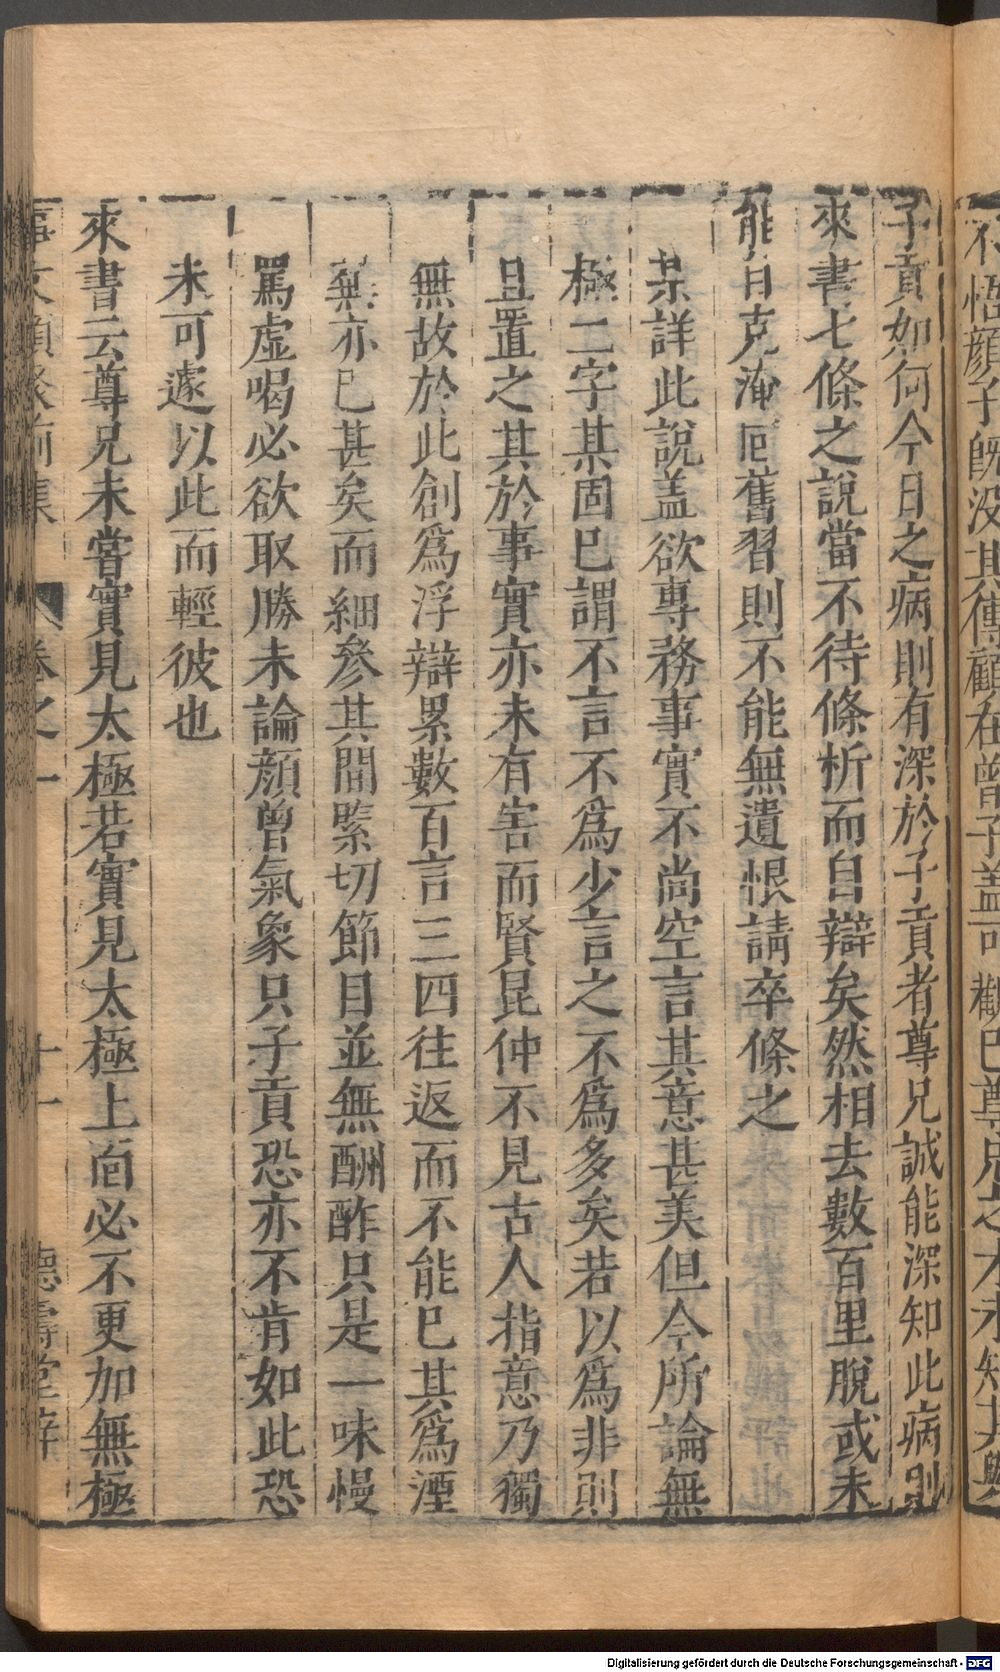 不悟顔子既没其傳顧在曾子蓋可觀已尊兄之才未知其與
子貢如何今日之病則有深於子貢者尊兄誠能深知此病則
來書七條之說當不待條析而自辯矣然相去數百里脫或未
能自克淹囘舊習則不能無遺恨請卒條之
某詳此說蓋欲專務事實不尚空言其意甚美但今所論無
極二字某固已謂不言不爲少言之不爲多矣若以爲非則
且置之其於事實亦未有害而賢昆仲不見古人指意乃獨
無故於此創爲浮辯累數百言三四往返而不能已其爲湮
蕪亦已甚矣而細參其間緊切節目並無酬酢只是一味慢
罵虛喝必欲取勝未論顔曾氣象只子貢恐亦不肯如此恐
未可遽以此而輕彼也
來書云尊兄未嘗實見太極若實見太極上面必不更加無極
事文類聚前集 卷之一 十一 德壽堂梓
Digitalisierung gefördert durch die Deutsche Forschungsgemeinschaft - DFG